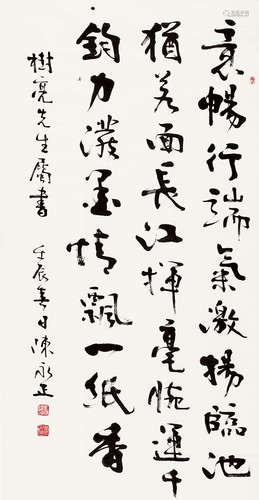 意暢行端氣激揚臨池
猶若面長江揮毫腕運千
鈞力潑墨情飄一紙香
樹亮先生屬書 壬辰春日陳永正